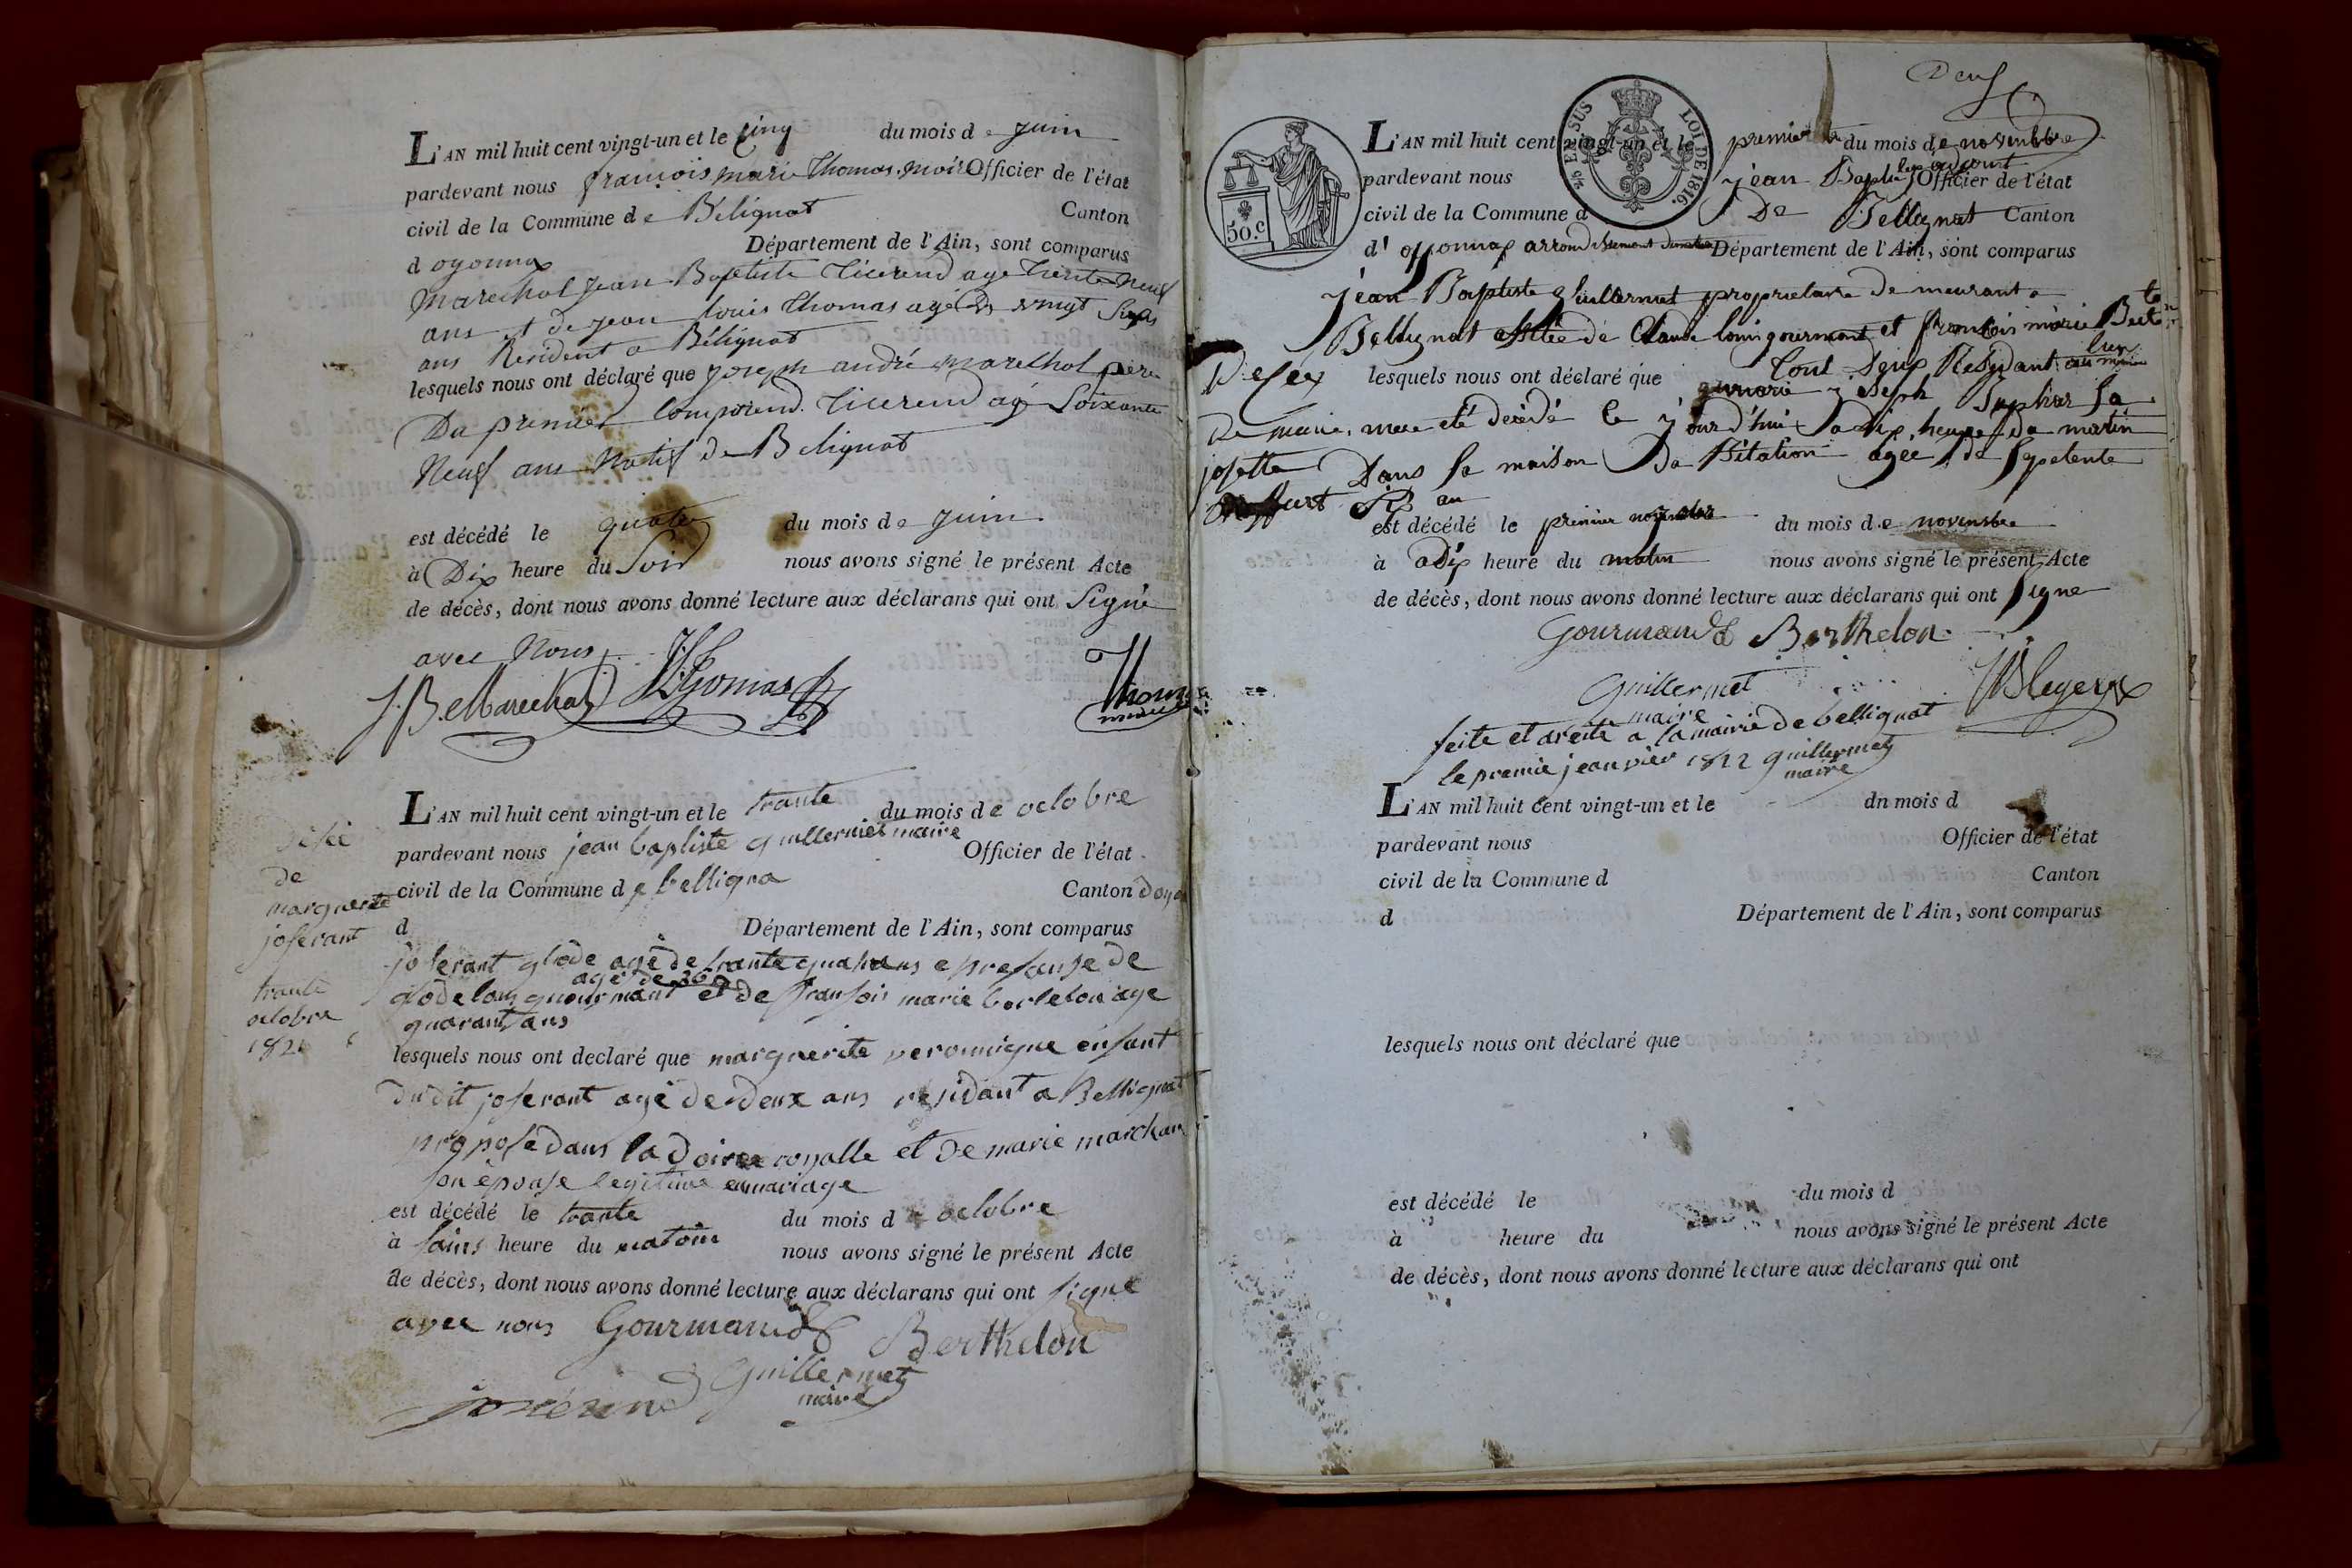 L'AN mil huit cent vingt-un et le cinq du mois de Juin
pardevant nous françois marie Thomas maire Officier de l'état
civil de la Commune de Bélignat Canton
d oyonnax Département de l'Ain, sont comparus
Marechal Jean Baptiste Ticerend age trente Neuf
ans et de jean louis Thomas agé de vingt
ans Resident a Bélignat
lesquels nous ont déclaré que joseph andré marechal pere
Du premier comparend. Ticerend agé Soixante
Neuf ans Natif de Belignat
est décédé le quatre du mois de Juin
à Dix heure du Soir nous avons signé le présent Acte
de décès, dont nous avons donné lecture aux déclarans qui ont Signé
avec Nous
J. B. Marechal Thomas Thomas
maire
L'AN mil huit cent vingt-un et le trante du mois de octobre
pardevant nous jean baptiste guillermet maire Officier de l'état
civil de la Commune de belligna Canton doyo
d Département de l'Ain, sont comparus
de
marguerite
joserant
trante
octobre
1821
joserant glode agé de trante quatrans e presanse de
glode louis gourmant agé de 36 et de fransois marie bertelon age
quarant ans
lesquels nous ont declaré que marguerite veronnique enfant
du dit joserant agé de deux ans residant a Bellignat
proposé dans la royalle et de marie marchan
son épouse legitime en mariage
est décédé le trante du mois de octobre
à heure du matoin nous avons signé le présent Acte
de décès, dont nous avons donné lecture aux déclarans qui ont signé
avec nous Gourmand Berthelon
Guillermet
maire
Deux
50.c
EN SUS
LOI DE 1816.
L'AN mil huit cent vingt-un et le premier du mois de novembre
pardevant nous jean Baptiste Officier de l'état
civil de la Commune d De Bellignat Canton
d' oyonnax arrondissement Département de l'Ain, sont comparus
jean Baptiste guillermet proprietaire De meurant a
Bellignat de Claude louis gourmont et francois marie Bert
lesquels nous ont déclaré que tout Deux Residant
Deses
de marie
josette
mare eté decédé le jour d'hui a dix heure du matin
Dans sa maison Da Bitation agée de Sepetente
Six an
est décédé le premier novembre du mois de novembre
à a Dix heure du matin nous avons signé le présent Acte
de décès, dont nous avons donné lecture aux déclarans qui ont signe
Gourmand Berthelon
Guillermet
maire
JB legeret
feite et areité a la mairie de bellignat
le premie jeanvier 1822 guillermet
maire
L'AN mil huit cent vingt-un et le dn mois d
pardevant nous Officier de l'état
civil de la Commune d Canton
d Département de l'Ain, sont comparus
lesquels nous ont déclaré que
est décédé le du mois d
à heure du nous avons signé le présent Acte
de décès, dont nous avons donné lecture aux déclarans qui ont